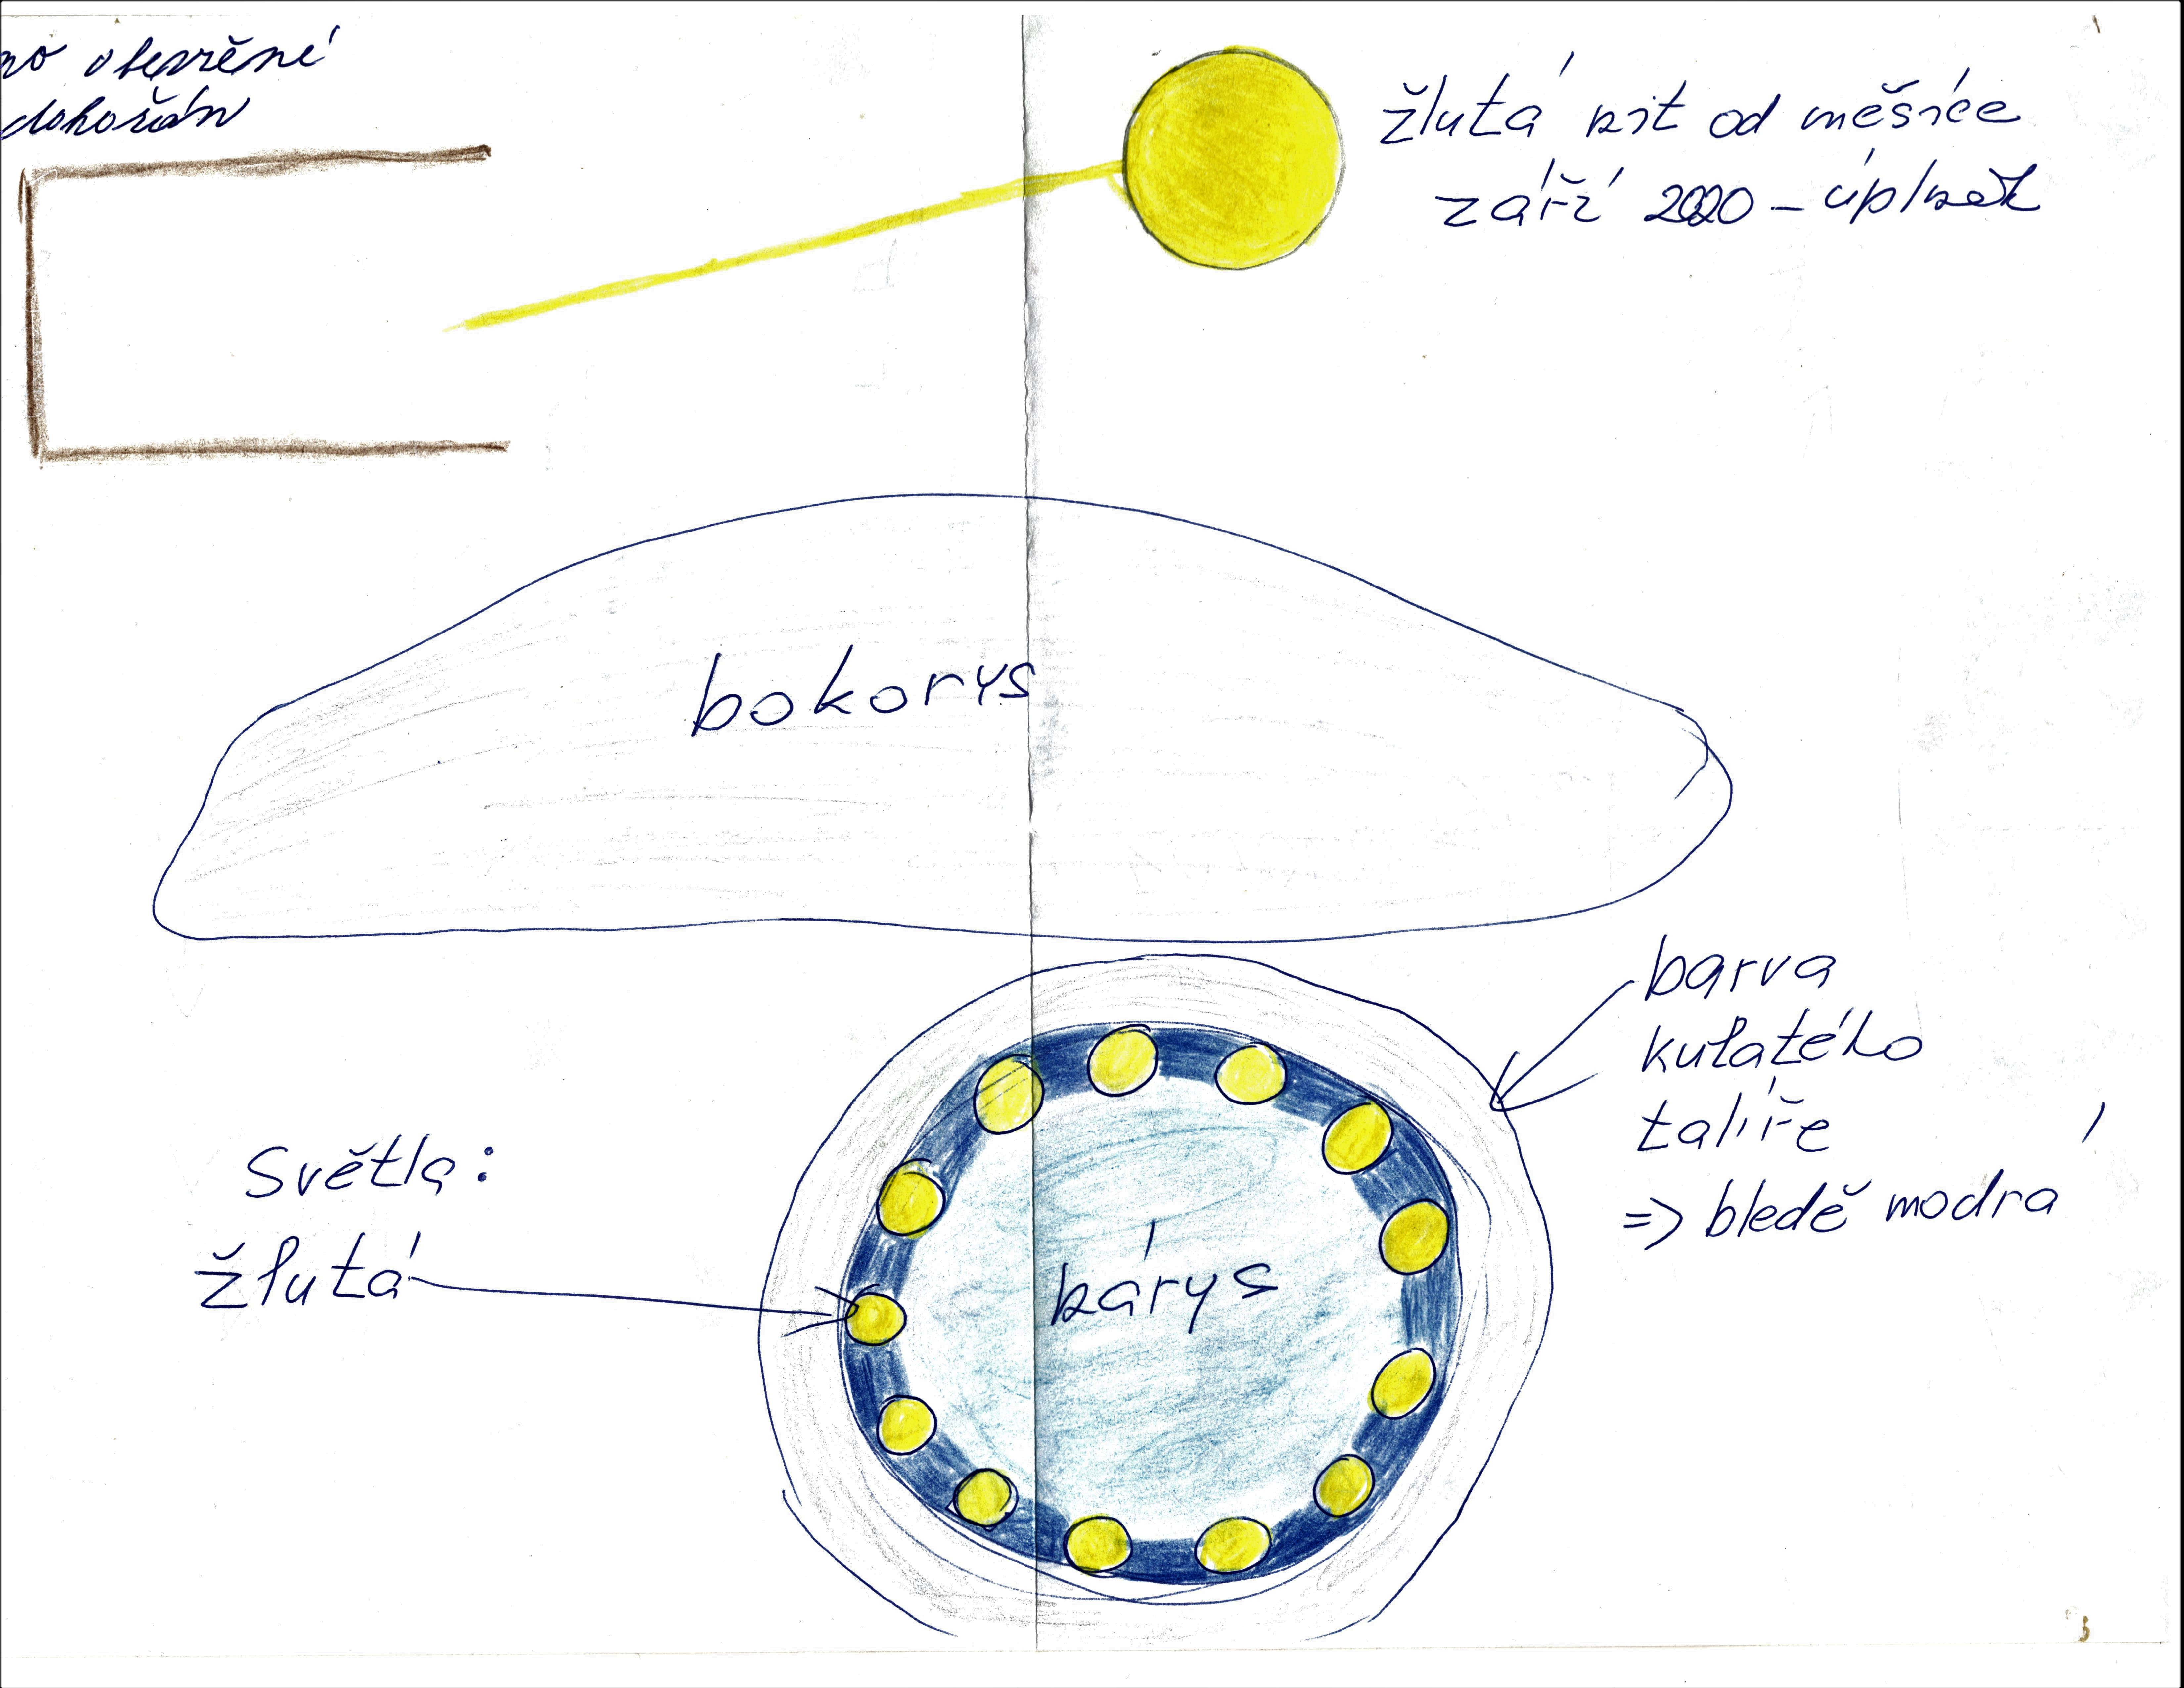 no otevřené
dokořán
žlutá nit od měsíce
září 2020 - úplněk
bokorys
barva
kulatého
talíře
=> bledě modrá
Světla:
žlutá
nárys